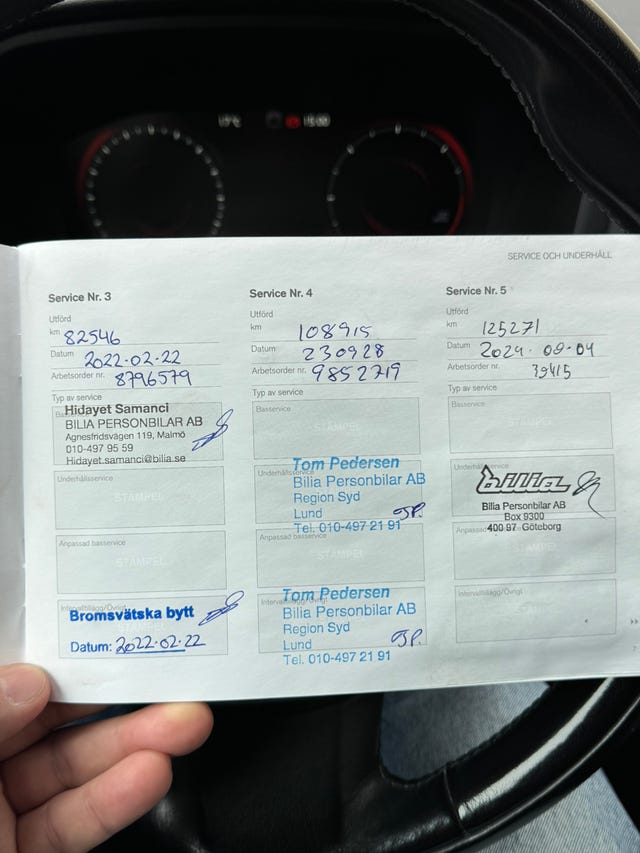 17°C 15:00
SERVICE OCH UNDERHÅLL
Service Nr. 3
Utförd
km 82546
Datum 2022-02-22
Arbetsorder nr. 8796579
Typ av service
Basservice
Hidayet Samanci
BILIA PERSONBILAR AB
Agnesfridsvägen 119, Malmö
010-497 95 59
Hidayet.samanci@bilia.se
Underhållsservice
STÄMPEL
Anpassad basservice
STÄMPEL
Intervalltillägg/Övrigt
Bromsvätska bytt
Datum: 2022-02-22
Service Nr. 4
Utförd
km 108915
Datum 230928
Arbetsorder nr. 9852719
Typ av service
Basservice
STÄMPEL
Underhållsservice
Tom Pedersen
Bilia Personbilar AB
Region Syd
Lund TP.
Tel. 010-497 21 91
Anpassad basservice
STÄMPEL
Intervalltillägg/Övrigt
Tom Pedersen
Bilia Personbilar AB
Region Syd
Lund TP.
Tel. 010-497 21 91
Service Nr. 5
Utförd
km 125271
Datum 2024-09-04
Arbetsorder nr. 39415
Typ av service
Basservice
STÄMPEL
Underhållsservice
bilia
Bilia Personbilar AB
Box 9300
400 97 Göteborg
Anpassad basservice
STÄMPEL
Intervalltillägg/Övrigt
STÄMPEL